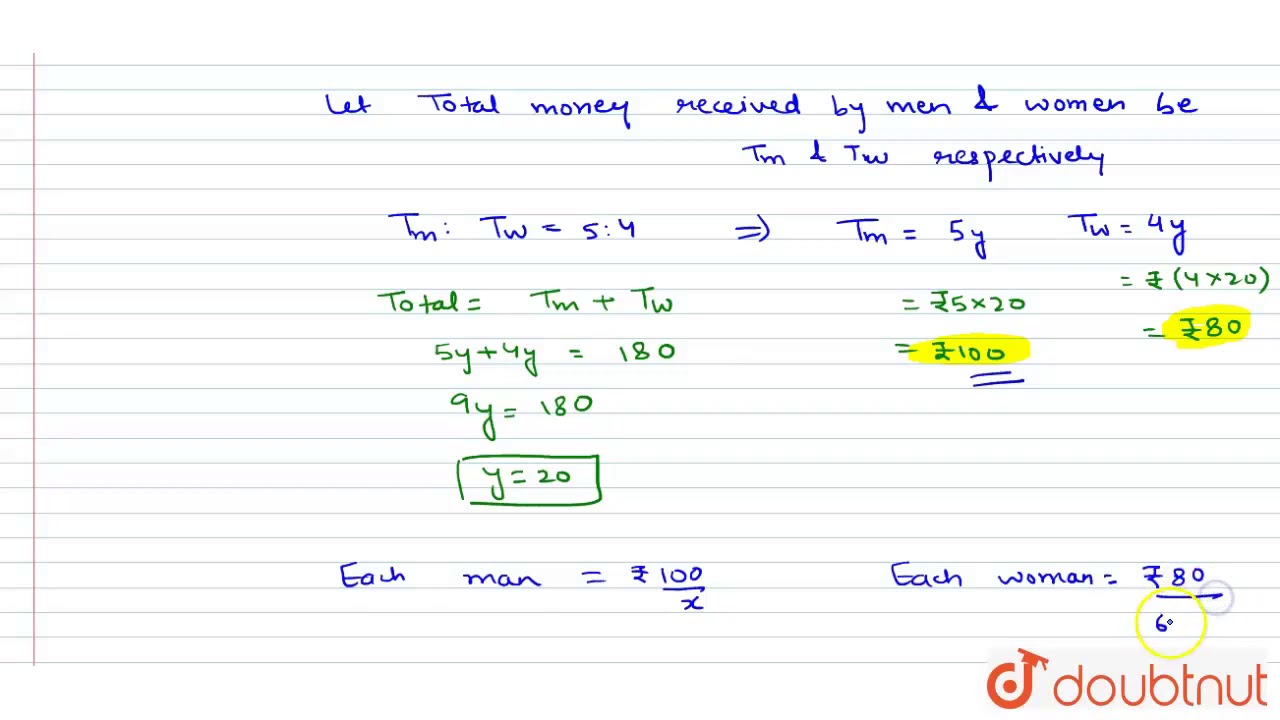 Let Total money received by men & women be
Tm & Tw respectively
Tm : Tw = 5:4 => Tm = 5y Tw = 4y
= ₹ (4×20)
Total = Tm + Tw = ₹5×20
= ₹80
5y+4y = 180 = ₹100
9y = 180
y = 20
Each man = ₹100 Each woman = ₹80
x 6
doubtnut